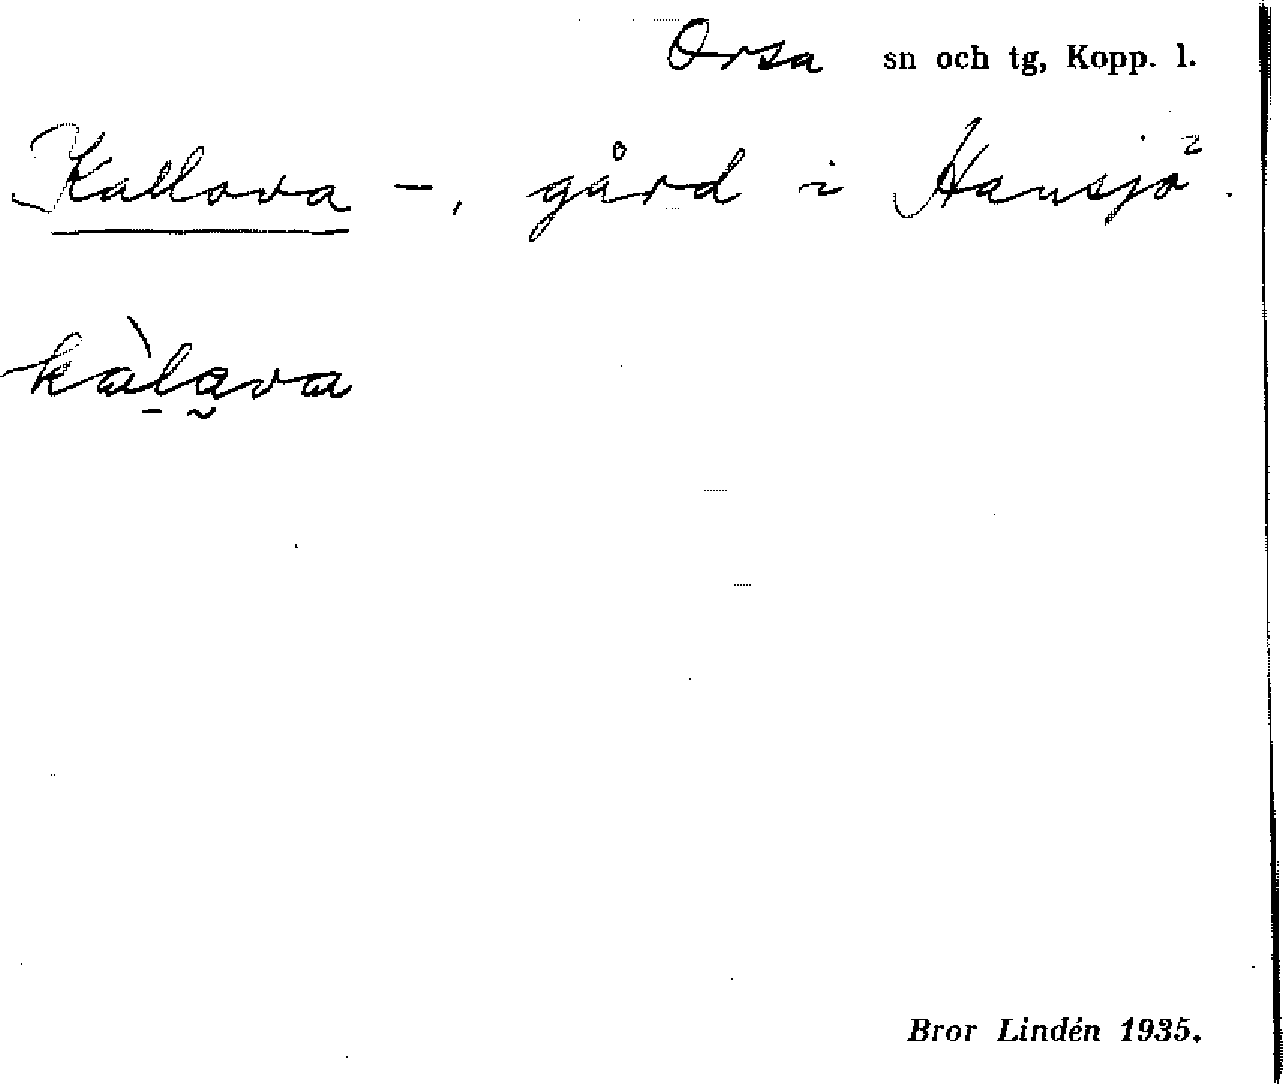 Orsa sn och tg, Kopp. l.
Kallova -, gård i Hansjö.
kàl̠a̰va
Bror Lindén 1935.